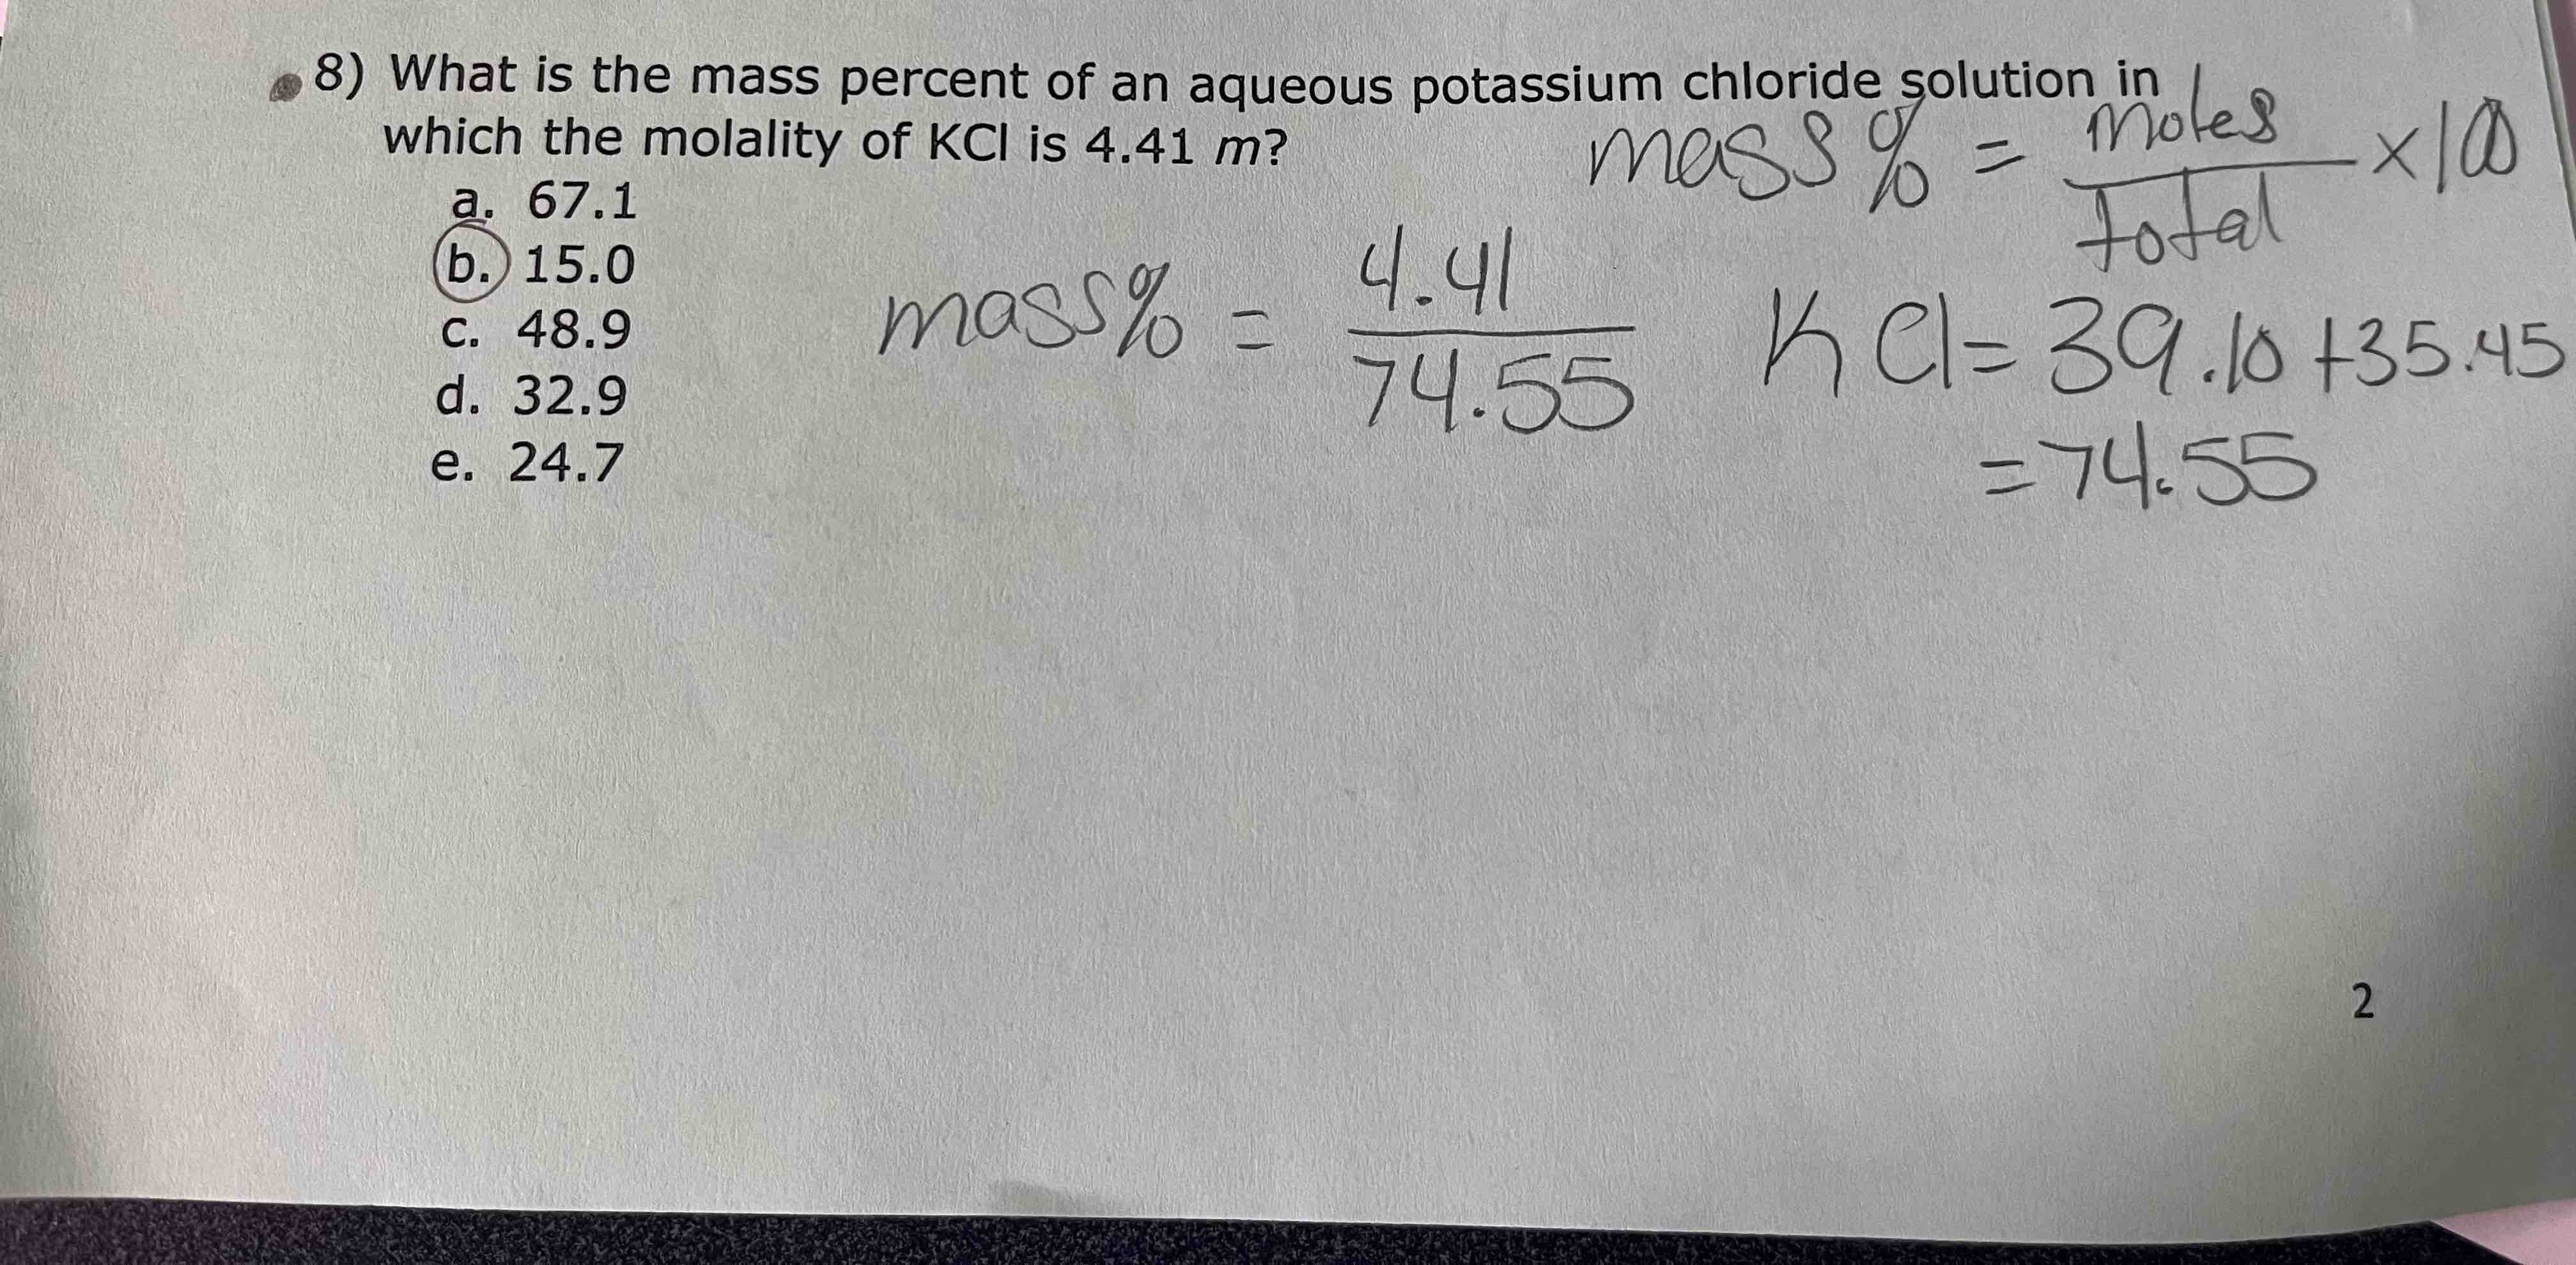 8) What is the mass percent of an aqueous potassium chloride solution in
which the molality of KCl is 4.41 m?
a. 67.1
b. 15.0
c. 48.9
d. 32.9
e. 24.7
mass % = moles / total × 100
mass % = 4.41 / 74.55
KCl = 39.10 + 35.45
= 74.55
2